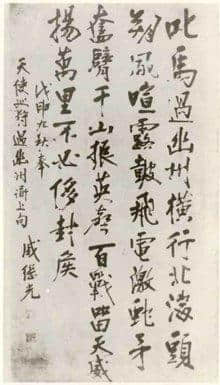 叱馬過幽州橫行北海頭
朔風喧露皷飛電激虵矛
奮臂千山振英聲百戰留天威
揚萬里不必侈封侯
戊申九秋奉
天使巡狩過幽州上 戚繼光